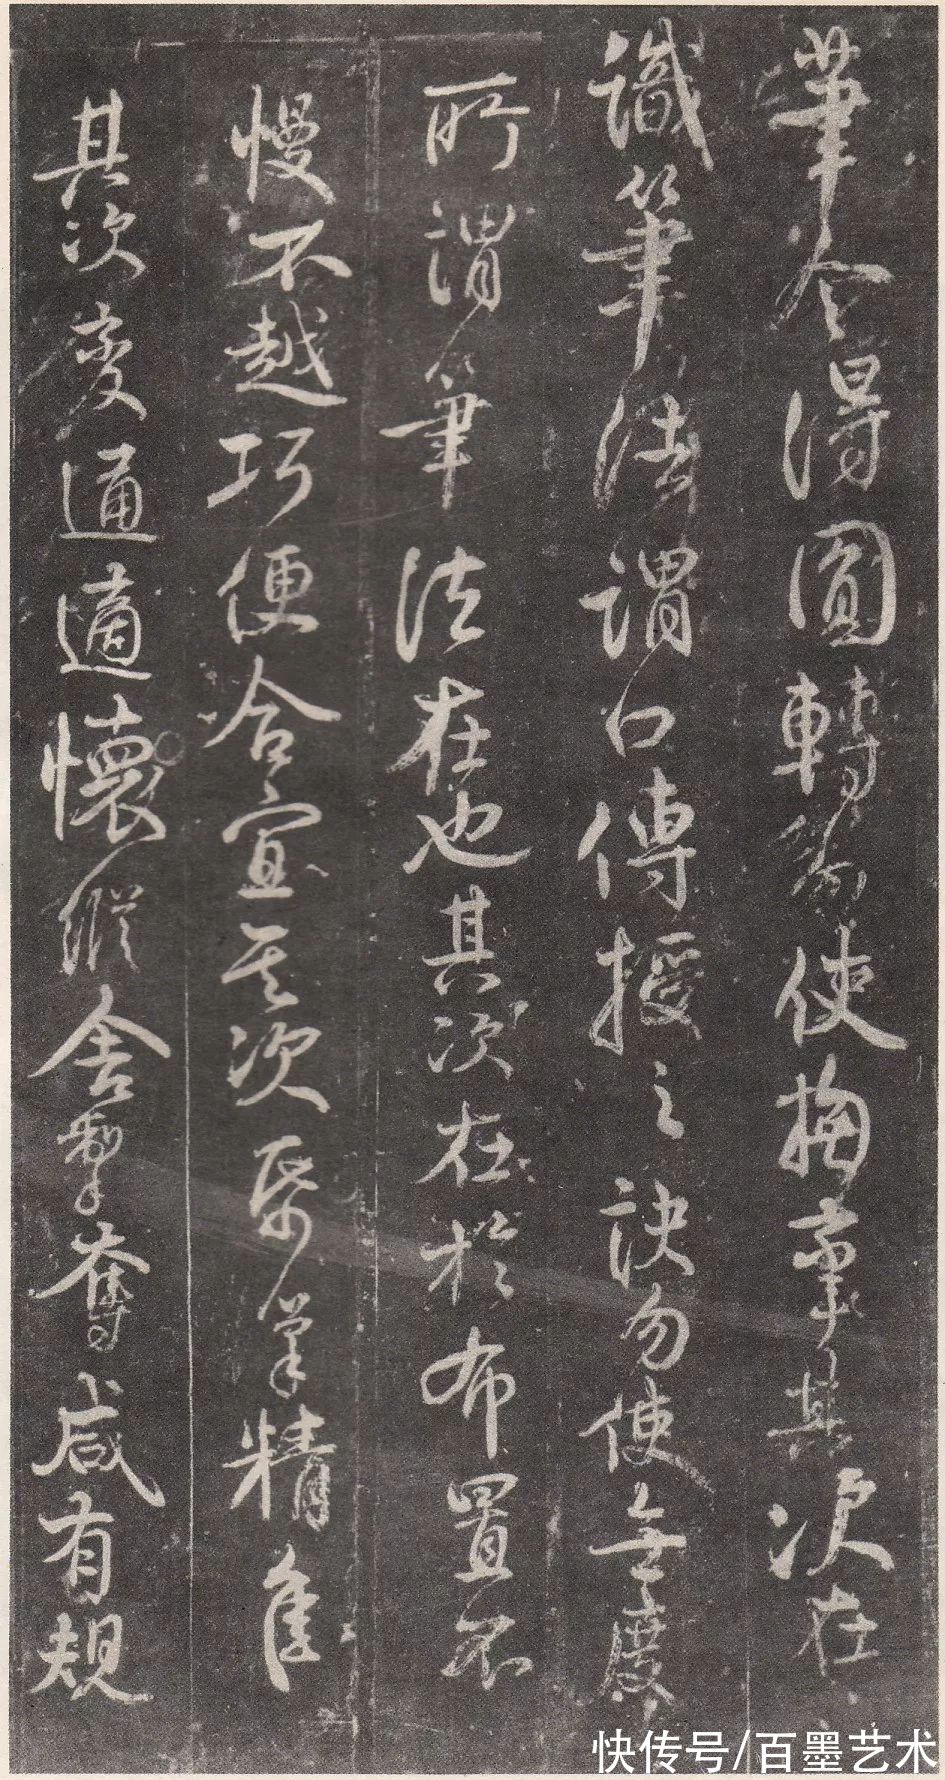 筆令得圓轉使拘其次在
識筆法謂口傳授之訣勿使無度
所謂筆法在也其次在於布置不
慢不越巧便合宜其次紙筆精佳
其次變通適懷縱舍掣奪咸有規
快传号/百墨艺术